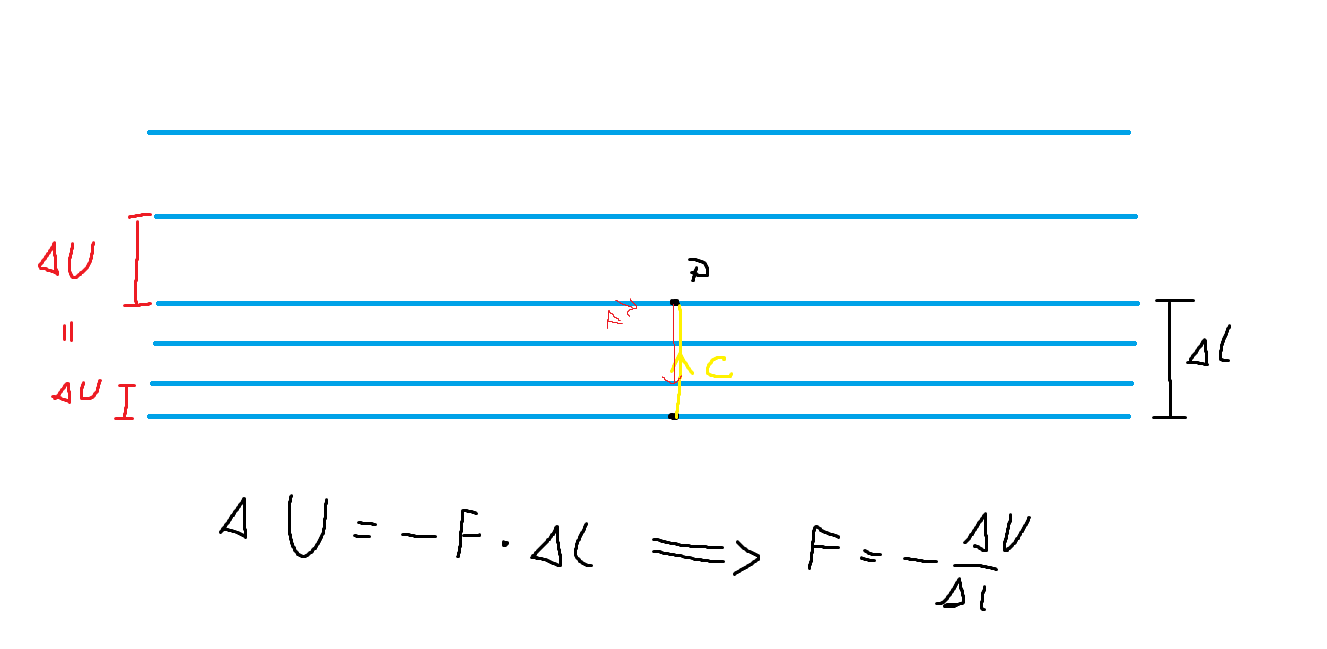 P
ΔU
=
ΔU
F
C
Δl
ΔU = -F · Δl ⟹ F = - ΔU/Δl